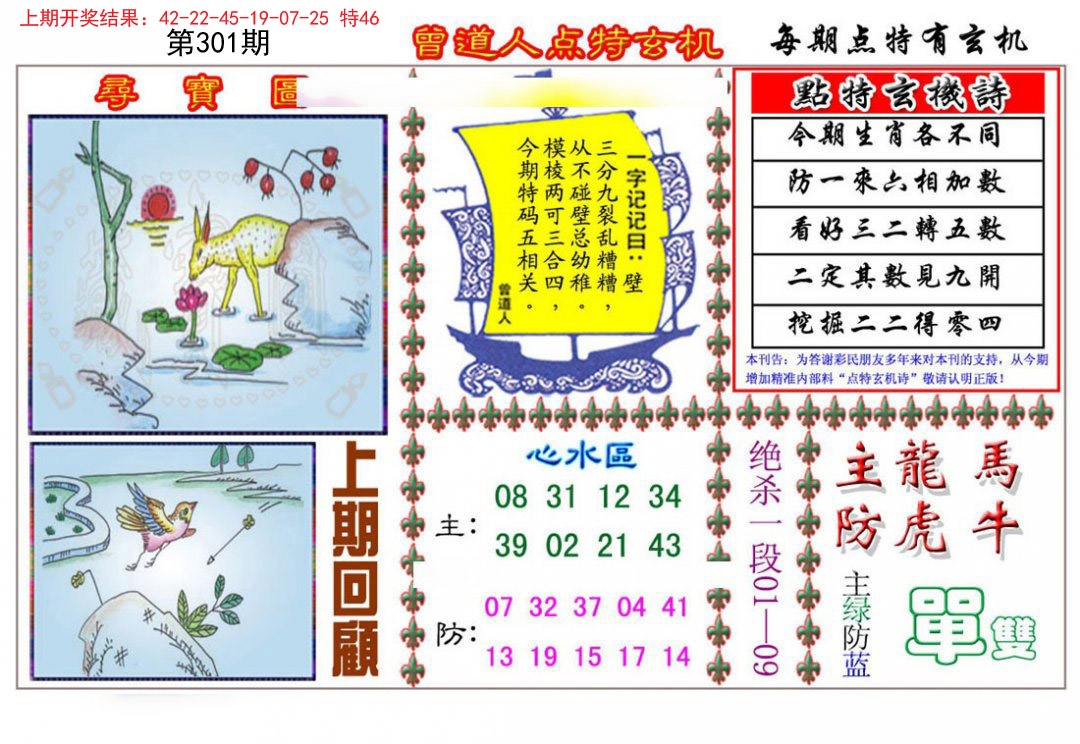 上期开奖结果：42-22-45-19-07-25 特46
第301期
曾道人点特玄机
每期点特有玄机
尋寶圖
一字记记曰：壁
三分九裂乱糟糟，
从不碰壁总幼稚。
模棱两可三合四，
今期特码五相关。
曾道人
點特玄機詩
今期生肖各不同
防一來六相加數
看好三二轉五數
二定其數見九開
挖掘二二得零四
本刊告：为答谢彩民朋友多年来对本刊的支持，从今期
增加精准内部料“点特玄机诗”敬请认明正版！
上期回顧
心水區
主：
08 31 12 34
39 02 21 43
防：
07 32 37 04 41
13 19 15 17 14
绝杀一段01—09
主龍馬
防虎牛
主绿防蓝
單雙